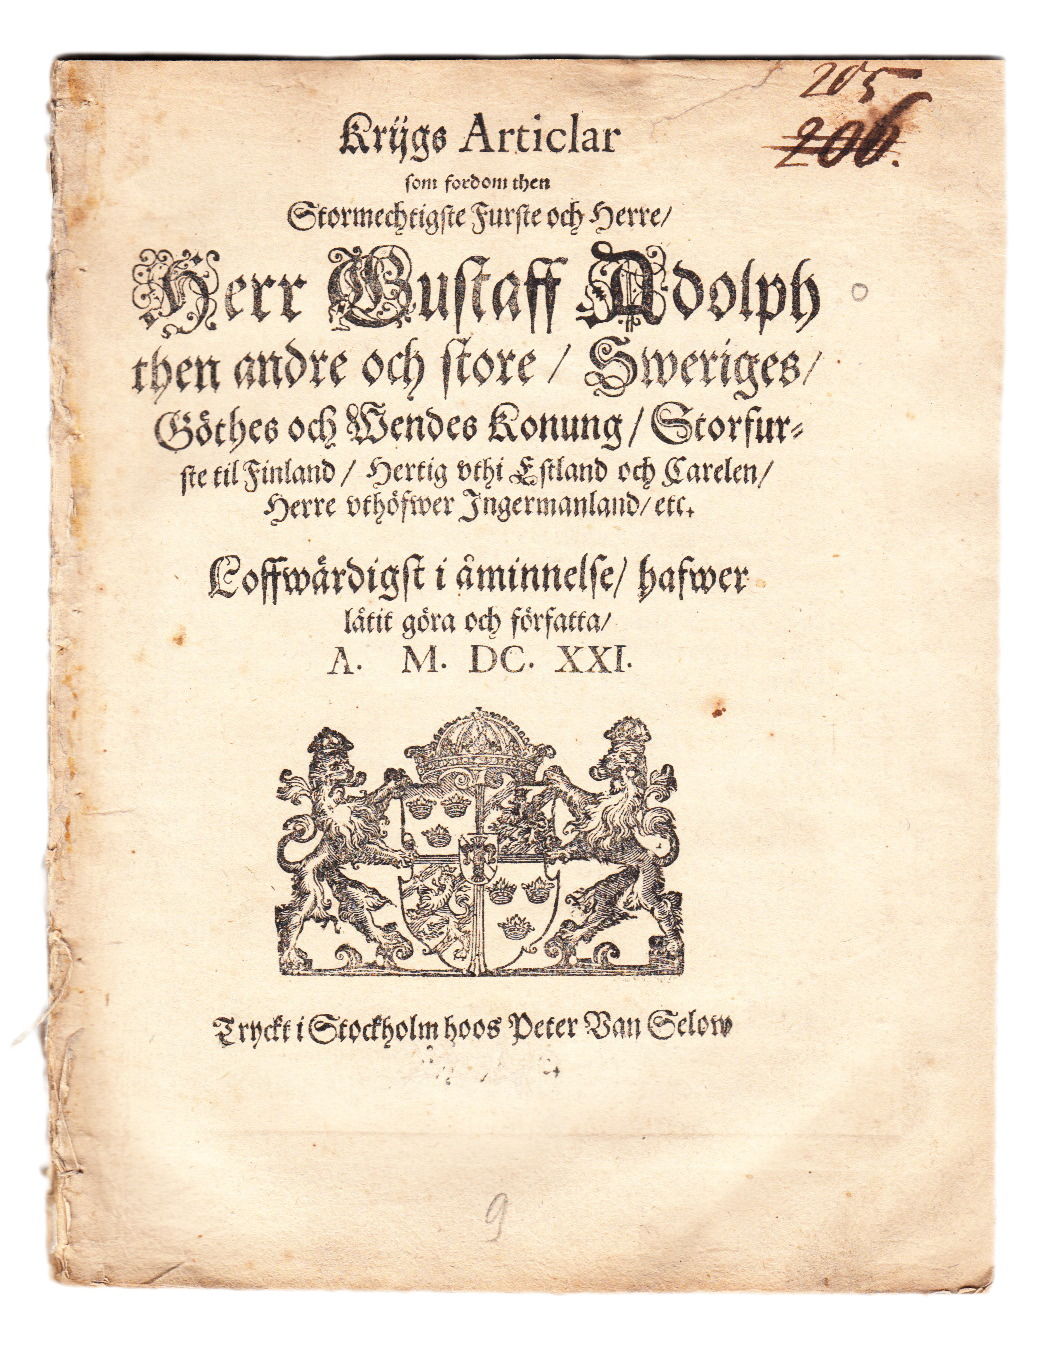 205
206.
Krijgs Articlar
som fordom then
Stormechtigste Furste och Herre/
Herr Gustaff Adolph
then andre och store / Sweriges/
Göthes och Wendes Konung / Storfur⸗
ste til Finland / Hertig vthi Estland och Carelen/
Herre vthöfwer Ingermanland/ etc.
Loffwärdigst i åminnelse/ hafwer
låtit göra och författa/
A. M. DC. XXI.
Tryckt i Stockholm hoos Peter Van Selow
9